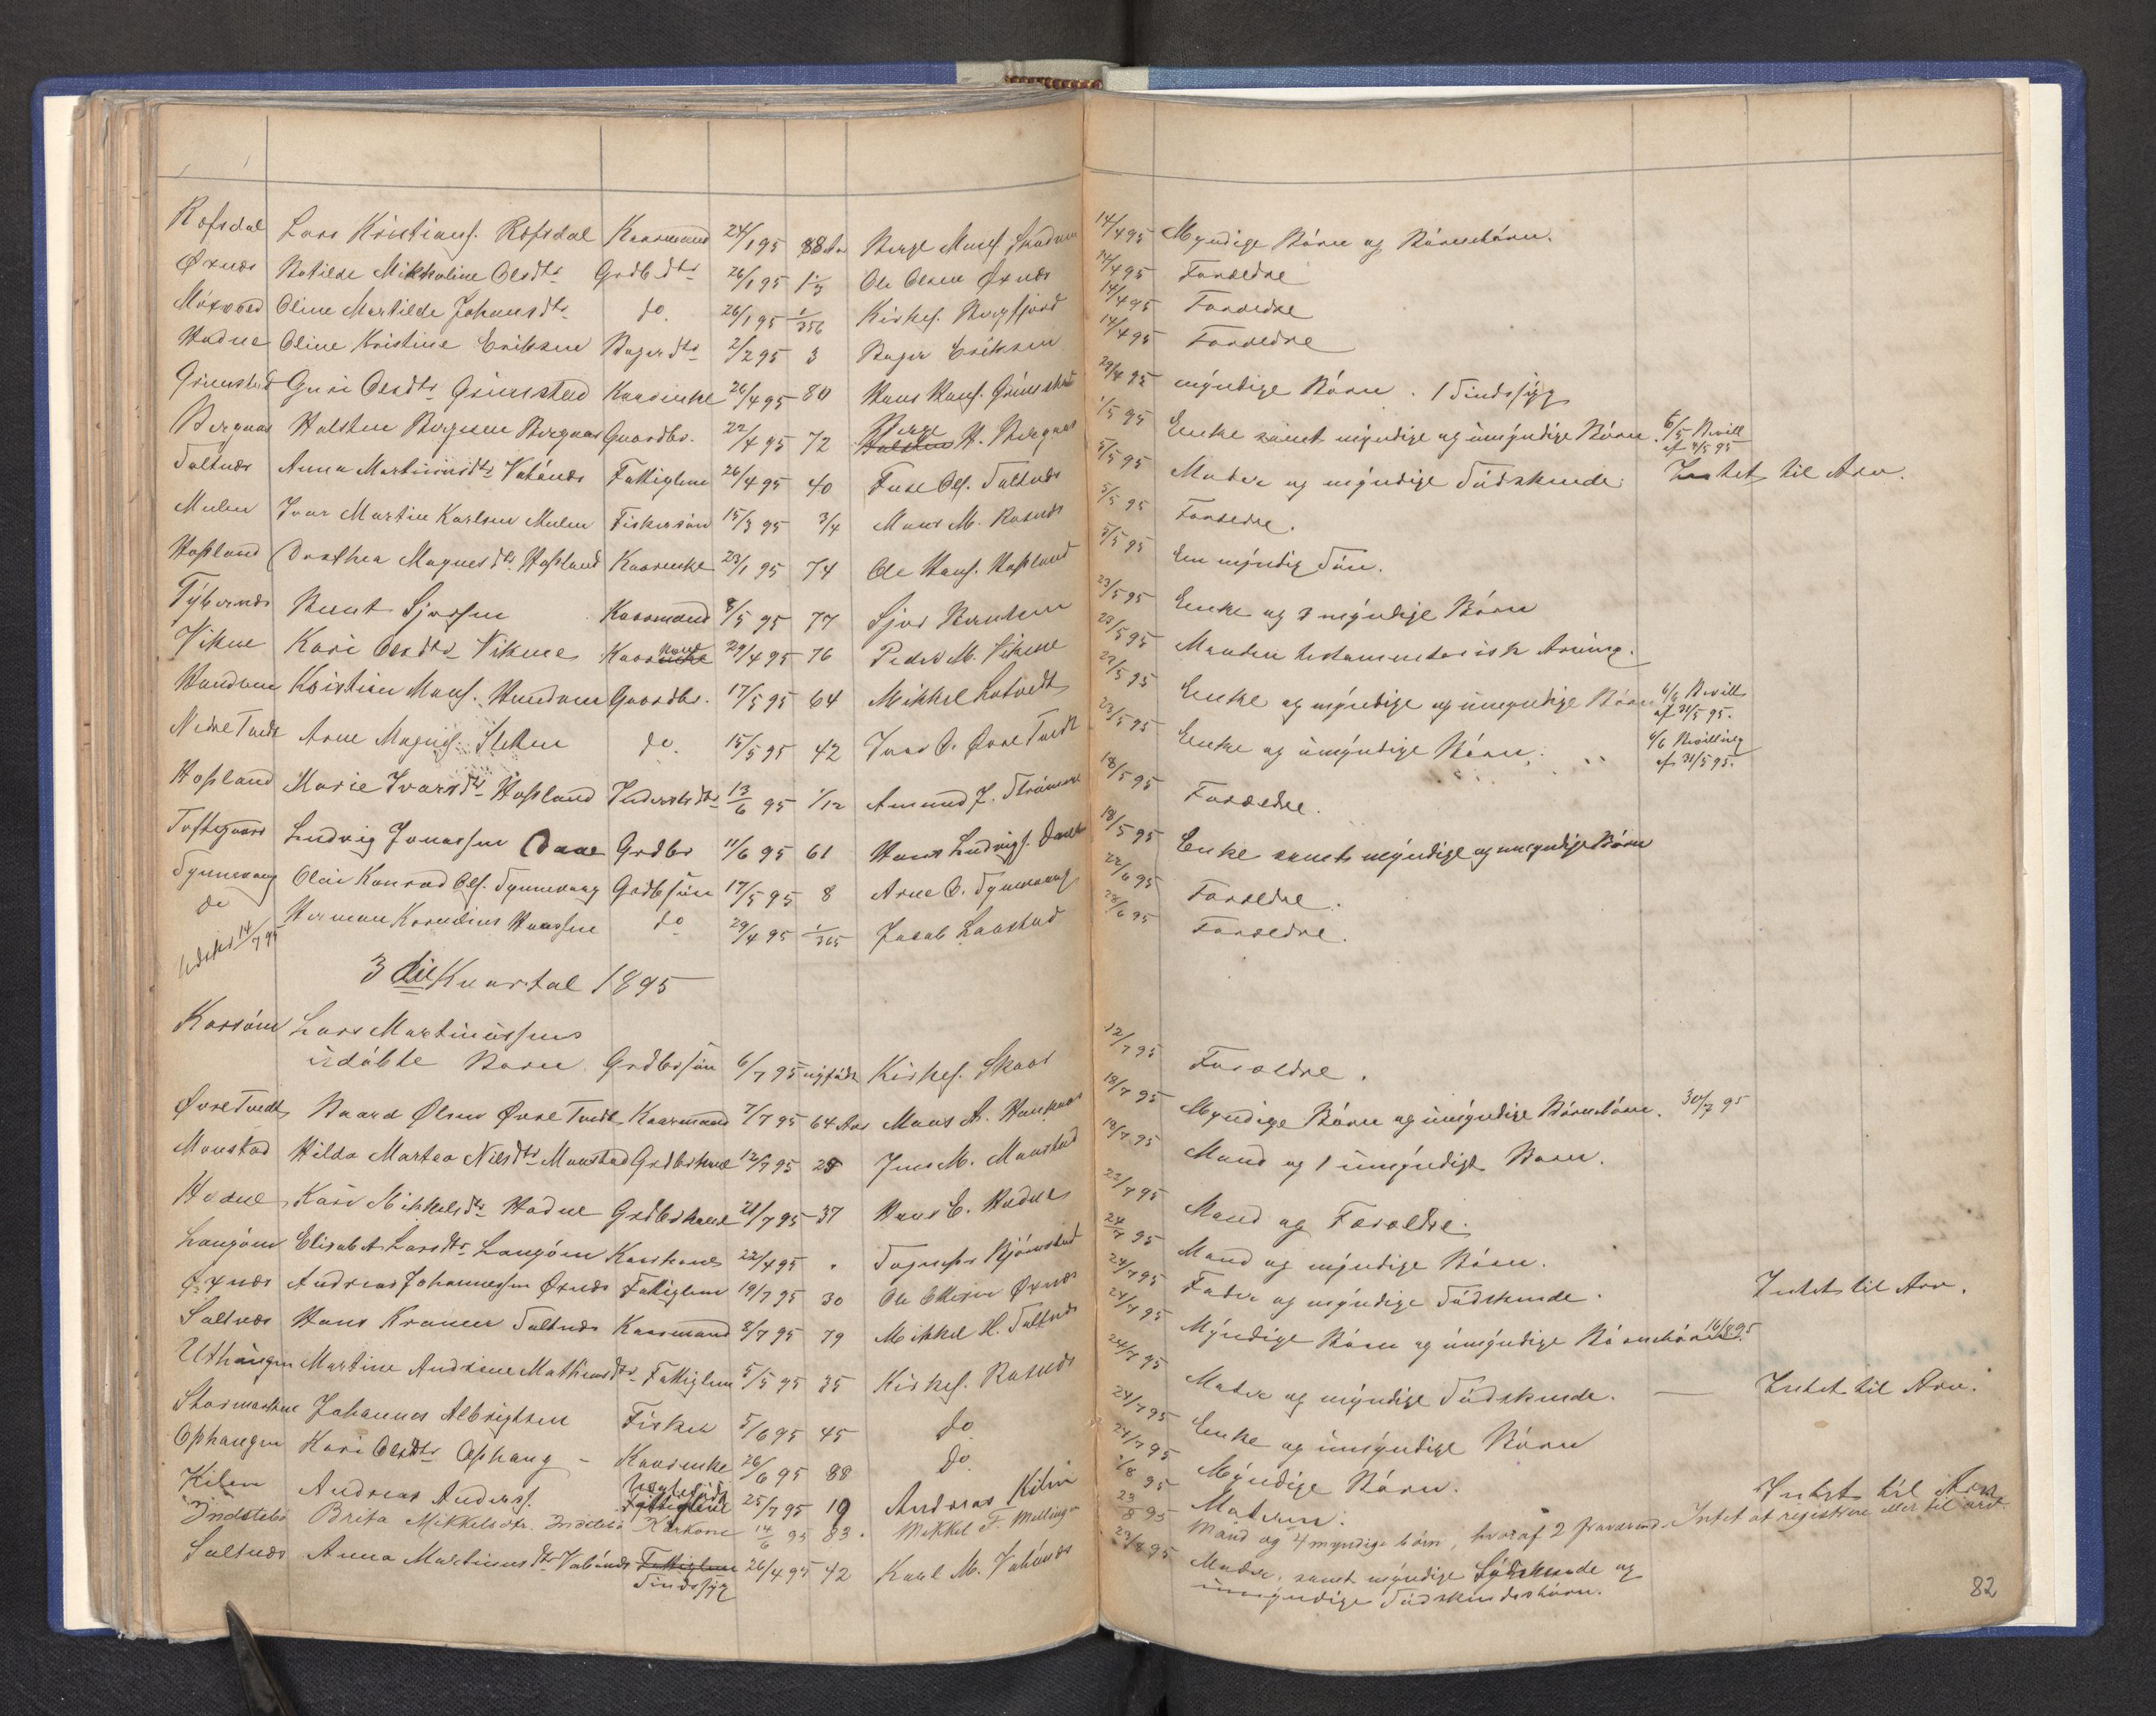 Rofsdal Lars Kristians. Rofsdal Kaarmand 24/1 95 88 Aar Berge Mons. 14/4 95 Myndige Børn og Børnebørn.
Øxnæs Batilde Mikkoline Olsdtr Grdb.dtr 26/1 95 1/3 Ole Olsen Øxnæs 14/4 95 Forældre
Oline Martilde Johansdtr do. 26/1 95 1/356 Kirkes. 14/4 95 Forældre
Hodne Oline Kristine Eriksen Bagerdtr 2/2 95 3 Bager Eriksen 14/4 95 Forældre
Grimstad Guri Olsdtr Grimstad Kaarenke 20/4 95 80 Hans Hans. Grimstad 29/4 95 myndige Børn. 1 Sindssyg
Bergnæs Halsten Bergesen Bergnæs Gaardbr. 22/4 95 72 Berge H. Bergnæs 1/5 95 Enke samt myndige og umyndige Børn. 6/5 Bevill. af 4/5 95
Saltnæs Anna Martinusdtr Fattiglem 26/4 95 40 Ols. Saltnæs 5/5 95 Moder og myndige Sødskende. Intet til Arv.
Mulen Ivar Martin Karlsen Mulen Fiskersøn 15/3 95 3/4 Mons M. Rosnæs 5/5 95 Forældre.
Hopland Dorthea Magnesdtr Hopland Kaarenke 23/1 95 74 Ole Hans. Hopland 5/5 95 En myndig Søn.
Bernt Sjursen Kaarmand 8/5 95 77 Sjur Berntsen 23/5 95 Enke og 3 myndige Børn
Vikne Kari Olsdtr Vikne Kaarkone 29/4 95 76 Peder M. Vikne 23/5 95 Manden testamentarisk Arving.
Kristian Mons. Gaardbr. 17/5 95 64 Mikkel Lotvedt 23/5 95 Enke og myndige og umyndige Børn 6/6 Bevill. af 31/5 95.
Nedre Tvedt Arne Magnes. Sletten do. 15/5 95 42 Ivar O. Øvre Tvedt 23/5 95 Enke og umyndige Børn. 6/6 Bevilling af 31/5 95.
Hopland Marie Ivarsdtr Hopland Inderstdtr 13/6 95 1/12 Amund J. 18/5 95 Forældre.
Toftegaard Ludvig Jonassen Daae Grdbr 11/6 95 61 Hans Ludvigs. Daae 18/5 95 Enke samt myndige og umyndige Børn
Synnevaag Olai Konrad Ols. Synnevaag Grdb.søn 17/5 95 8 Arne O. Synnevaag 22/6 95 Forældre.
do Herman Kornelius Hansen do 29/4 95 1/365 Jakob Laastad 28/6 95 Forældre.
14/7 95
3die Kvartal 1895
Lars Martinussens
udøbte Barn Grdbrsøn 6/7 95 nyfødt Kirkes. Skaar 12/7 95 Forældre.
Øvre Tvedt Baard Olsen Øvre Tvedt Kaarmand 7/7 95 64 Aar Mons A. 18/7 95 Myndige Børn og umyndige Børnebørn. 30/7 95
Monstad Hilda Martea Nilsdtr Monstad Grdbrkone 12/7 95 28 Jens M. Monstad 18/7 95 Mand og 1 umyndigt Barn.
Hodne Kari Mikkelsdtr Hodne Grdbrkone 21/7 95 37 Hans E. Hodne 22/7 95 Mand og Forældre.
Langøen Elisabet Larsdtr Langøen Kaarkone 22/4 95 " 24/7 95 Mand og myndige Børn.
Øxnæs Andreas Johannessen Øxnæs Fattiglem 19/7 95 30 Ole Øxnæs 24/7 95 Fader og myndige Sødskende. Intet til Arv.
Saltnæs Hans Kramer Saltnæs Kaarmand 8/7 95 79 Mikkel H. Saltnæs 24/7 95 Myndige Børn og umyndige Børnebørn. 16/8 95
Uthaugen Martine Andrine Mathiasdtr Fattiglem 5/5 95 35 Kirkes. Rosnæs 24/7 95 Moder og myndige Sødskende. — Intet til Arv.
Stormarken Johannes Albrigtsen Fisker 5/6 95 45 do 24/7 95 Enke og umyndige Børn
Ophaugen Kari Olsdtr Ophaug - Kaarenke 26/6 95 88 do. 24/7 95 Myndige Børn.
Kilen Andreas Anders. Fattiglem 25/7 95 19 Andreas Kilen 1/8 95 Moderen. Intet til Arv
Indstebø Brita Mikkelsdtr. Indstebø Kårkone 14/6 95 83. Mikkel F. Mellingen 23/8 95 Mand og 4 myndige børn, hvoraf 2 fraværende. Intet at registrere eller til arv.
Saltnæs Anna Martinusdtr Fattiglem Sindssyg 26/4 95 42 Karl M. 23/8 95 Moder, samt myndige Sødskende og
umyndige Sødskendebørn.
82